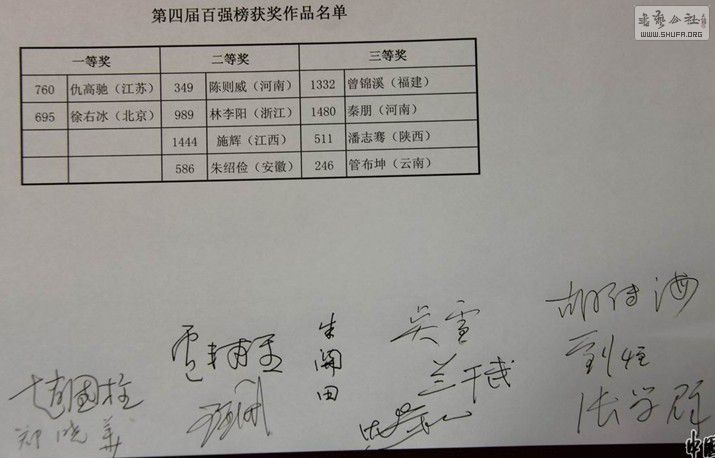 书艺公社
WWW.SHUFA.ORG
第四届百强榜获奖作品名单
一等奖 二等奖 三等奖
760 仇高驰（江苏） 349 陈则威（河南） 1332 曾锦溪（福建）
695 徐右冰（北京） 989 林李阳（浙江） 1480 秦朋（河南）
1444 施辉（江西） 511 潘志骞（陕西）
586 朱绍俭（安徽） 246 管布坤（云南）
吴雪
朱关田
兰干武
刘恒
赵国柱
张学群
郑晓华
中